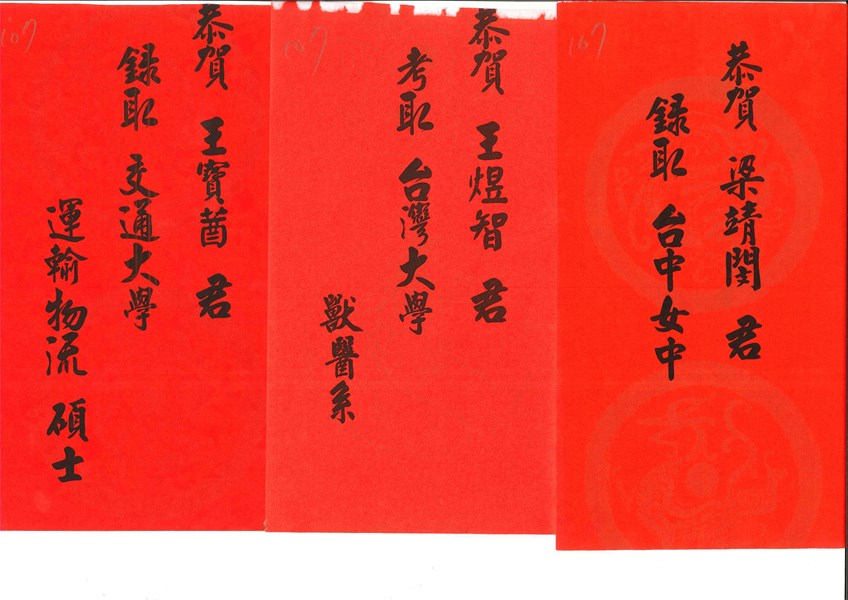 107
恭賀 梁靖閔 君
録取 台中女中
107
恭賀 王煜智 君
考取 台灣大學
獸醫系
107
恭賀 王寶茜 君
録取 交通大學
運輸物流 碩士